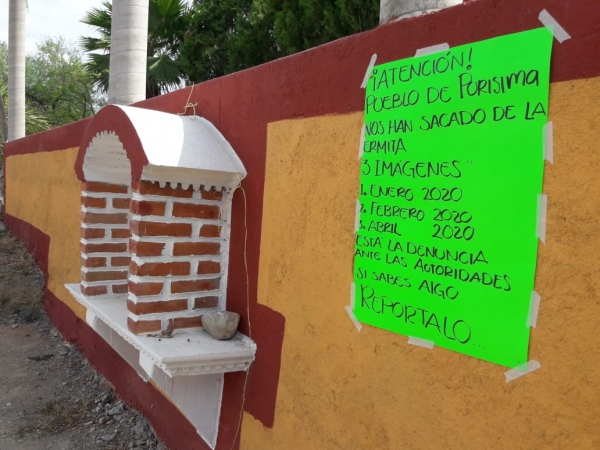 ¡ATENCIÓN!
PUEBLO DE PURISIMA
NOS HAN SACADO DE LA
ERMITA
3 IMÁGENES"
1. ENERO 2020
2. FEBRERO 2020
3. ABRIL 2020
ESTÁ LA DENUNCIA
ANTE LAS AUTORIDADES
SI SABES AlGO
REPÓRTALO...